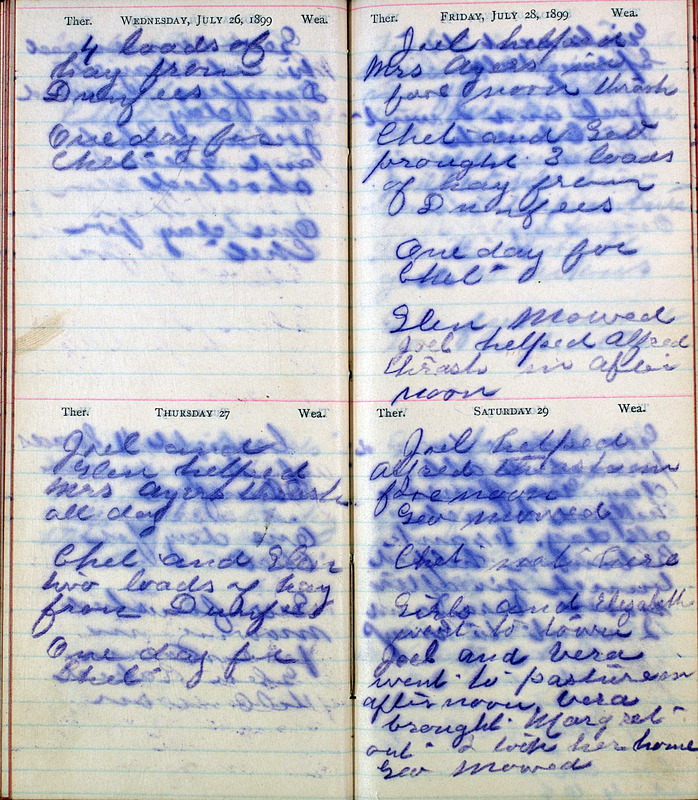 Ther. WEDNESDAY, JULY 26, 1899 Wea.
4 loads of
hay from
Dunfees
One day for
Chet
Ther. THURSDAY 27 Wea.
Joel and
Glen helped
Mrs Ayers thrash
all day
Chet and Glen
two loads of hay
from Dunfees
One day for
Chet
Ther. FRIDAY, JULY 28, 1899 Wea.
Joel helped
Mrs Ayers in
fore noon thrash
Chet and Geo
brought 3 loads
of hay from
Dunfees
One day for
Chet
Glen Mowed
Joel helped Alfred
thrash in after
noon
Ther. SATURDAY 29 Wea.
Joel helped
Alfred thrash in
fore noon
Geo mowed
Chet not here
Girls and Elizabeth
went to town
Joel and Vera
went to pasture in
after noon, Vera
brought Margret
out I took her home
Geo Mowed